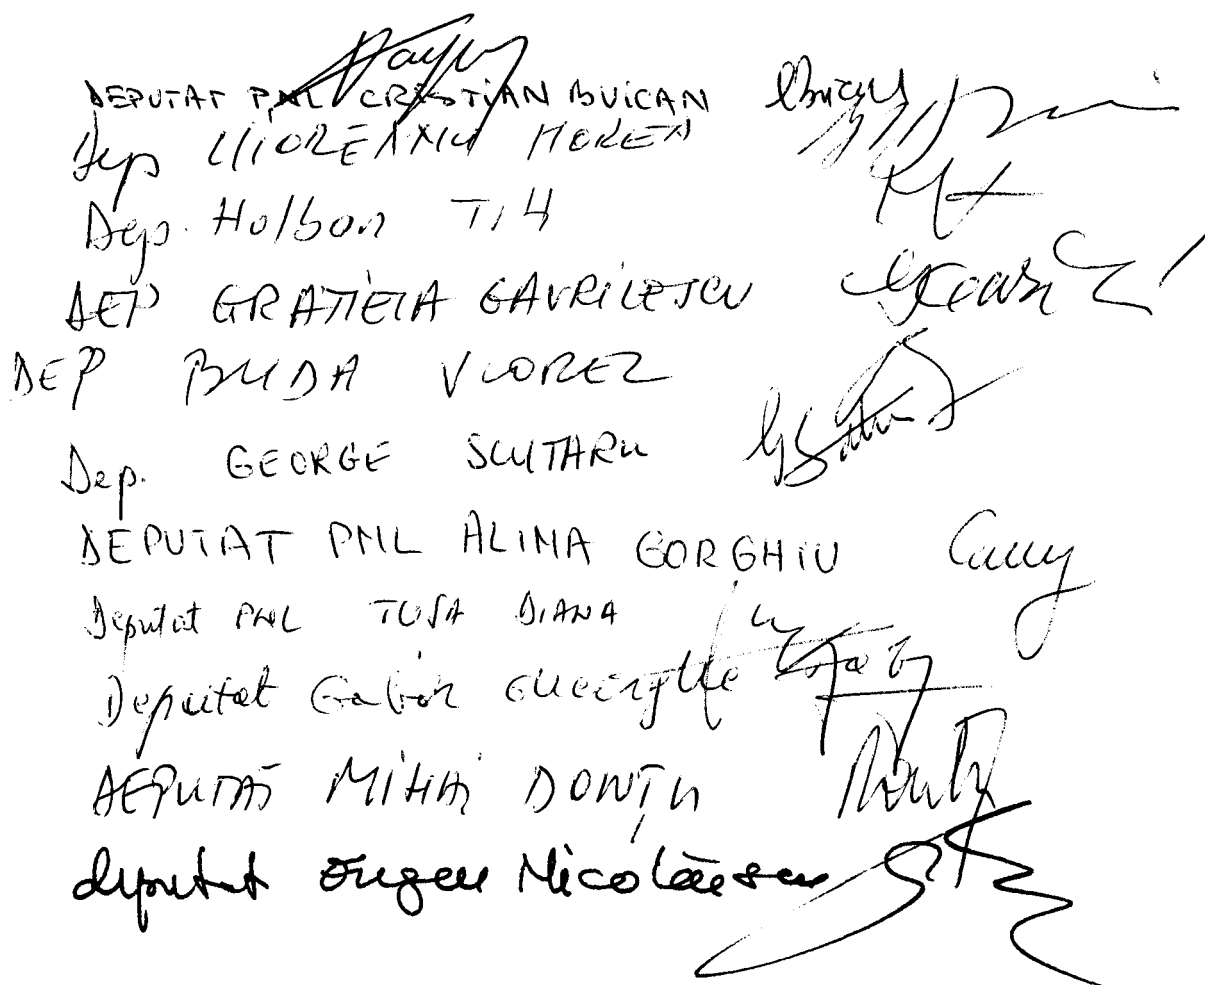 DEPUTAT PNL CRISTIAN BUICAN
Dep UIOREANU HOREA
Dep. Holban TiH
DEP GRATIELA GAVRILESCU
DEP BUDA VIOREL
Dep. GEORGE SCUTARU
DEPUTAT PNL ALINA GORGHIU
Deputat PNL TUSA DIANA
Deputat Gabor Gheorghe
DEPUTAT MIHAI DONȚU
deputat Eugen Nicolăescu